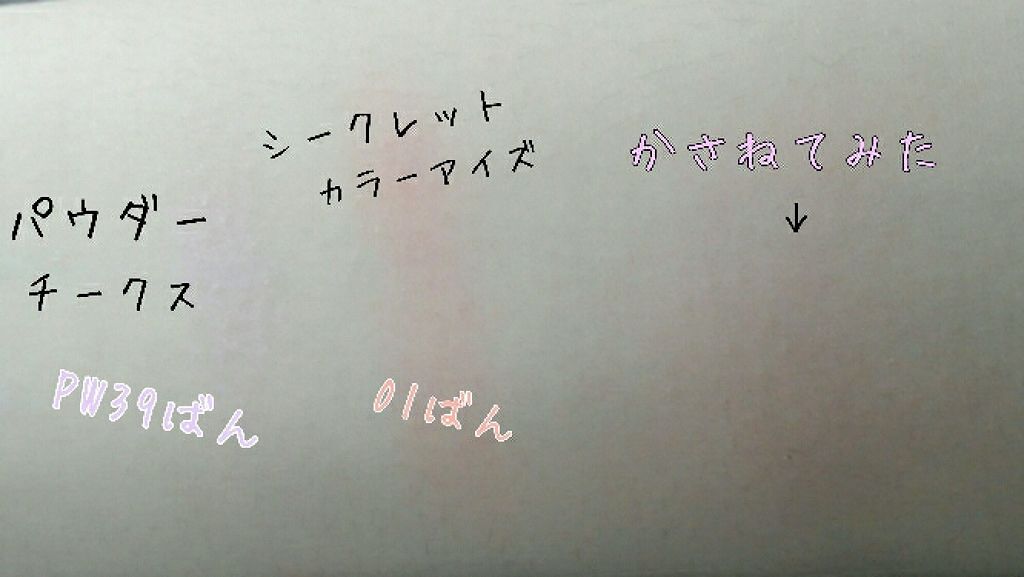 パウダー
チークス
PW39ばん
シークレット
カラーアイズ
01ばん
かさねてみた
↓